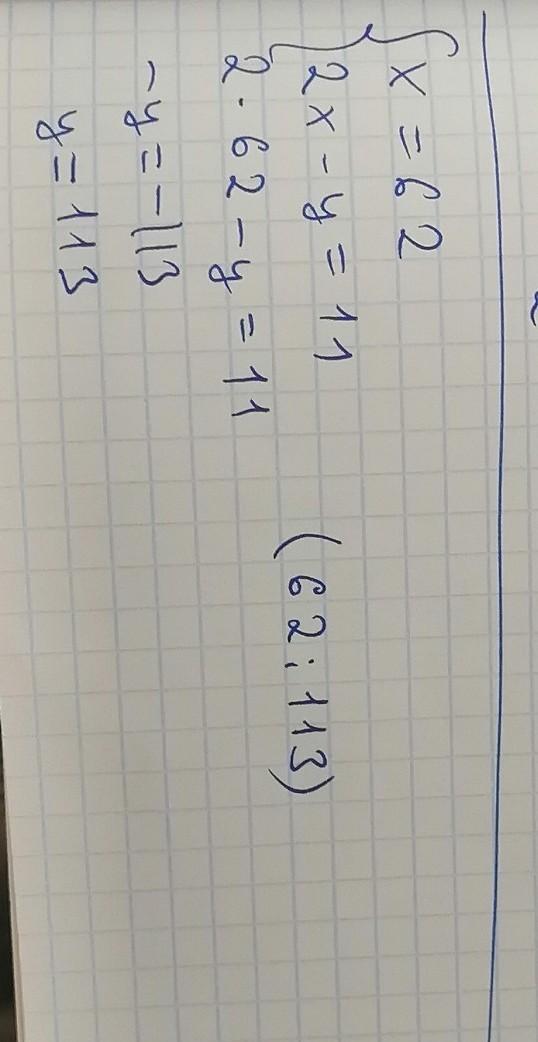 x = 62
2x - y = 11
2 · 62 - y = 11
-y = -113
y = 113
(62; 113)